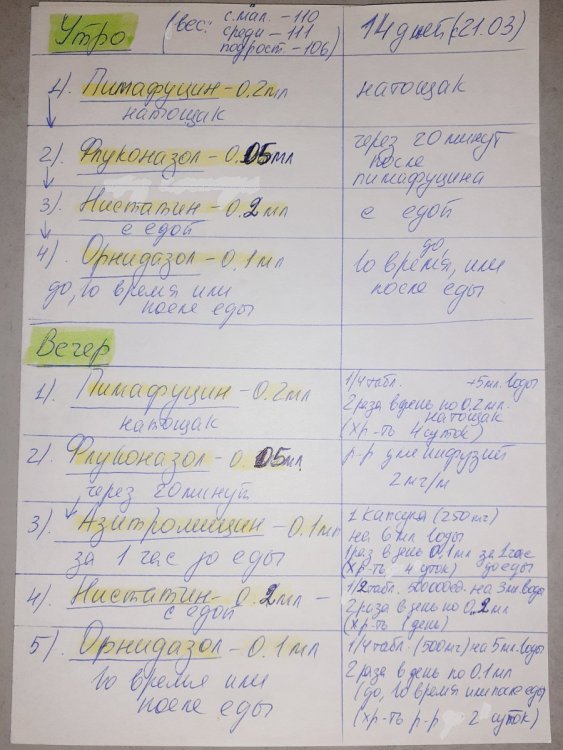 Утро
(вес: с.мал. - 110
среди - 111
подрост. - 106)
14 дней (с 21.03)
1). Пимафуцин - 0.2мл
натощак
натощак
2). Флуконазол - 0.05мл
через 20 минут
после
пимафуцина
3). Нистатин - 0.2мл
с едой
с едой
4). Орнидазол - 0.1мл
до, во время или
после еды
до,
во время, или
после еды
Вечер
1). Пимафуцин - 0.2мл
натощак
1/4 табл. +5мл. воды
2 раза в день по 0.2мл.
натощак
(хр-ть 4 суток)
2). Флуконазол - 0.05мл
через 20 минут
р-р для инфузий
2мг/м
3). Азитромицин - 0.1мл
за 1 час до еды
1 капсула (250мг)
на 6мл воды
1 раз в день 0.1мл за 1 час
до еды
(хр-ть 4 суток)
4). Нистатин - 0.2мл -
с едой
1/2 табл. 500000ед. на 3мл. воды
2 раза в день по 0.2мл
(хр-ть 1 день)
5). Орнидазол - 0.1мл
во время или
после еды
1/4 табл. (500мг) на 5мл. воды
2 раза в день по 0.1мл
(до, во время или после еды
(хр-ть р-р 2 суток)